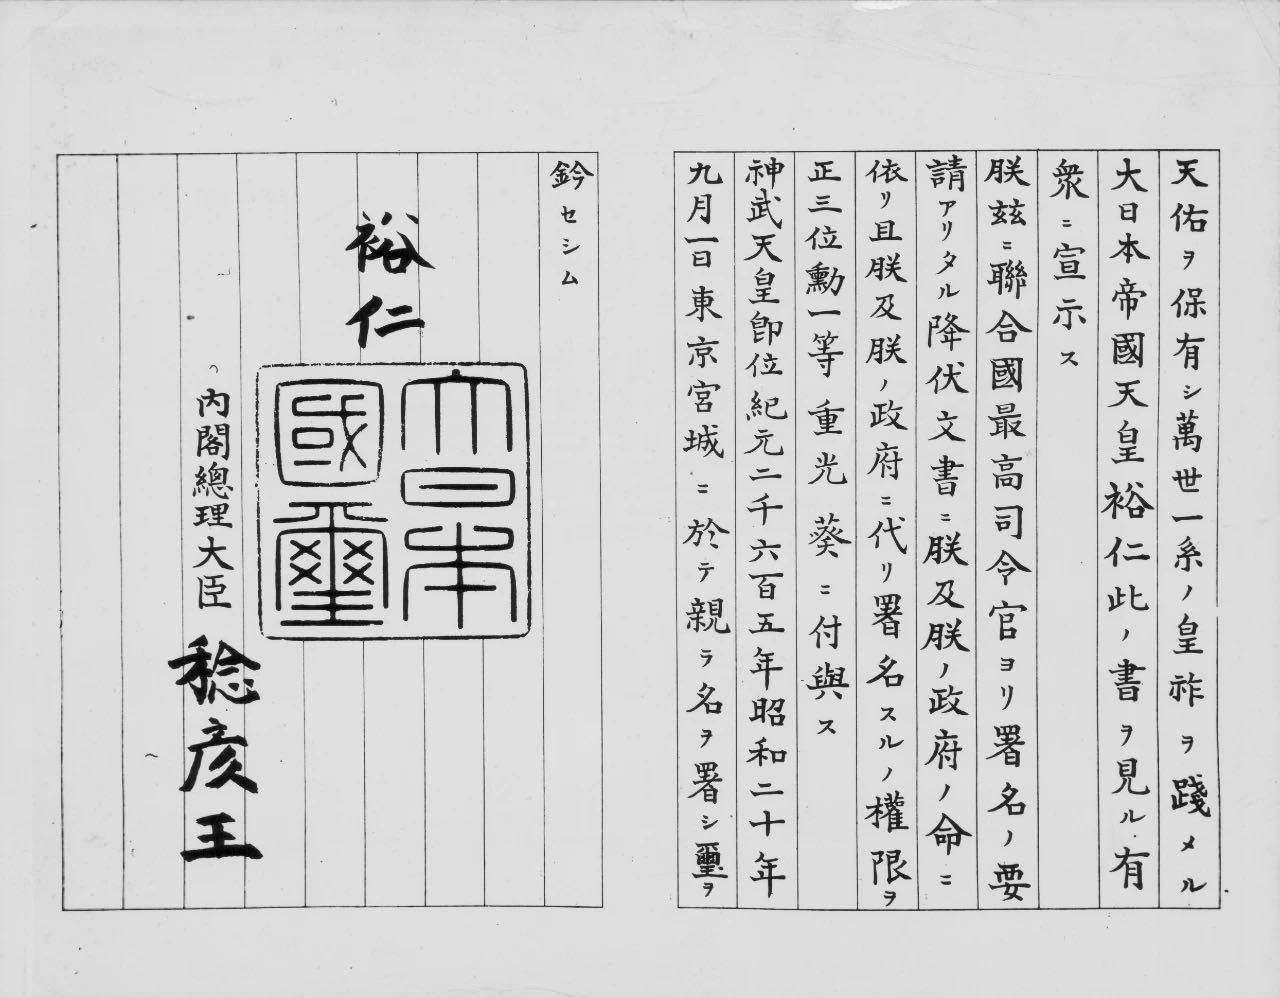 天佑ヲ保有シ萬世一系ノ皇祚ヲ踐メル
大日本帝國天皇裕仁此ノ書ヲ見ル有
衆ニ宣示ス
朕玆ニ聯合國最高司令官ヨリ署名ノ要
請アリタル降伏文書ニ朕及朕ノ政府ノ命ニ
依リ且朕及朕ノ政府ニ代リ署名スルノ權限ヲ
正三位勳一等重光葵ニ付與ス
神武天皇卽位紀元二千六百五年昭和二十年
九月一日東京宮城ニ於テ親ラ名ヲ署シ璽ヲ
鈐セシム
裕仁
大日本
國璽
內閣總理大臣 稔彥王